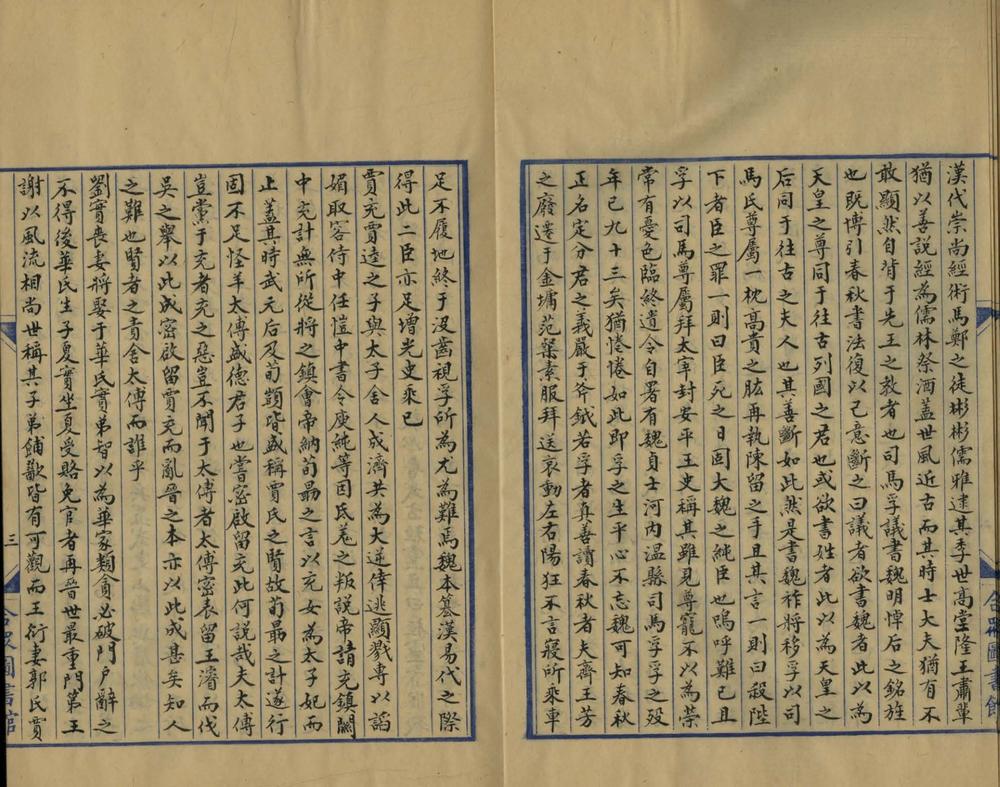 漢代崇尚經術馬鄭之徒彬彬儒雅逮其季世高堂隆王肅輩
猶以善説經為儒林祭酒蓋世風近古而其時士大夫猶有不
敢顯然自背于先王之教者也司馬孚議書魏明悼后之銘旌
也既博引春秋書法復以己意斷之曰議者欲書魏者此以為
天皇之尊同于往古列國之君也或欲書姓者此以為天皇之
后同于往古之夫人也其善斷如此然是書魏祚將移孚以司
馬氏尊屬一枕高貴之肱再執陳留之手且其言一則曰殺陛
下者臣之罪一則曰臣死之日固大魏之純臣也嗚呼難已且
孚以司馬尊屬拜太宰封安平王史稱其雖見尊寵不以為榮
常有憂色臨終遺令自署有魏貞士河内温縣司馬孚孚之殁
年已九十三矣猶惓惓如此即孚之生平心不忘魏可知春秋
正名定分君之義嚴于斧鉞若孚者真善讀春秋者夫齊王芳
之廢遷于金墉范粲素服拜送哀動左右陽狂不言寢所乘車
足不履地終于没齒視孚所為尤為難焉魏本簒漢易代之際
得此二臣亦足增光史乘已
賈充賈逵之子與太子舍人成濟共為大逆倖逃顯戮專以謟
媚取容侍中任愷中書令庾純等因氐羗之叛説帝請充鎮關
中充計無所從將之鎮會帝納荀勗之言以充女為太子妃而
止蓋其時武元后及荀顗皆盛稱賈氏之賢故荀勗之計遂行
固不足怪羊太傅盛德君子也嘗密啟留充此何説哉夫太傅
豈黨于充者充之惡豈不聞于太傅者太傅密表留王濬而伐
吳之舉以此成密啟留賈充而亂晉之本亦以此成甚矣知人
之難也賢者之責舍太傅而誰乎
劉實喪妻將娶于華氏實弟智以為華家類貪必破門户辭之
不得後華氏生子夏實坐夏受賂免官者再晉世最重門第王
謝以風流相尚世稱其子弟餔歠皆有可觀而王衍妻郭氏賈
三
合眾圖書館